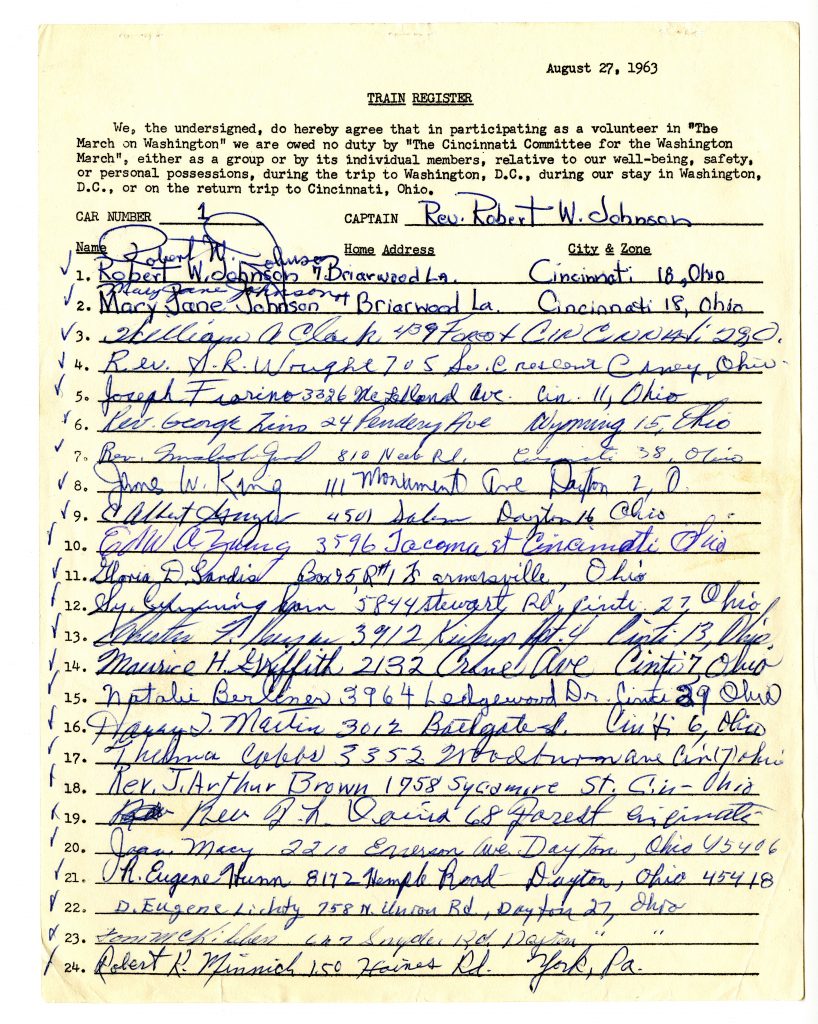 August 27, 1963
TRAIN REGISTER
We, the undersigned, do hereby agree that in participating as a volunteer in "The
March on Washington" we are owed no duty by "The Cincinnati Committee for the Washington
March", either as a group or by its individual members, relative to our well-being, safety,
or personal possessions, during the trip to Washington, D.C., during our stay in Washington,
D.C., or on the return trip to Cincinnati, Ohio.
CAR NUMBER 1 CAPTAIN Rev. Robert W. Johnson
Name Home Address City & Zone
Robert W. Johnson
1. Robert W. Johnson 7 Briarwood La. Cincinnati 18, Ohio
Mary Jane Johnson
2. Mary Jane Johnson 7 Briarwood La. Cincinnati 18, Ohio
3. William A Clark 439 Cincinnati O.
4. Rev. 705 Crescent Ohio
5. Joseph Fiorino 3326 Ave. Cin. 11, Ohio
6. Rev. George 24 Pendery Ave Wyoming 15, Ohio
7. Rev. 810 Rd. 38, Ohio
8. James W. King 111 Monument Ave Dayton 2, O.
9. 4501 Salem Dayton 16 Ohio
10. 3596 Tacoma st Cincinnati Ohio
11. Gloria D. Box 95 R#1 Farmersville, Ohio
12. 5844 Stewart Rd, Cinti. 27, Ohio
13. 3912 Apt. 4 Cinti. 13, Ohio
14. Maurice H. Griffith 2132 Crane Ave Cinti 7, Ohio
15. Natalie Berliner 3964 Ledgewood Dr. Cinti 29 Ohio
16. Martin 3012 Bathgate st. Cin'ti 6, Ohio
17. Thelma Cobbs 3352 Woodburn ave Cin (7) Ohio
18. Rev. J. Arthur Brown 1758 Sycamore St. Cin- Ohio
19. Rev 68 Forest
20. Joan Macy 2210 Emerson Ave. Dayton, Ohio 45406
21. R. Eugene 8172 Hemple Road Dayton, Ohio 45418
22. D. Eugene Lichty 758 N. Union Rd, Dayton 27, Ohio
23. Tom McKibben Snyder Rd Dayton " "
24. Robert K. Minnich 150 Haines Rd. York, Pa.